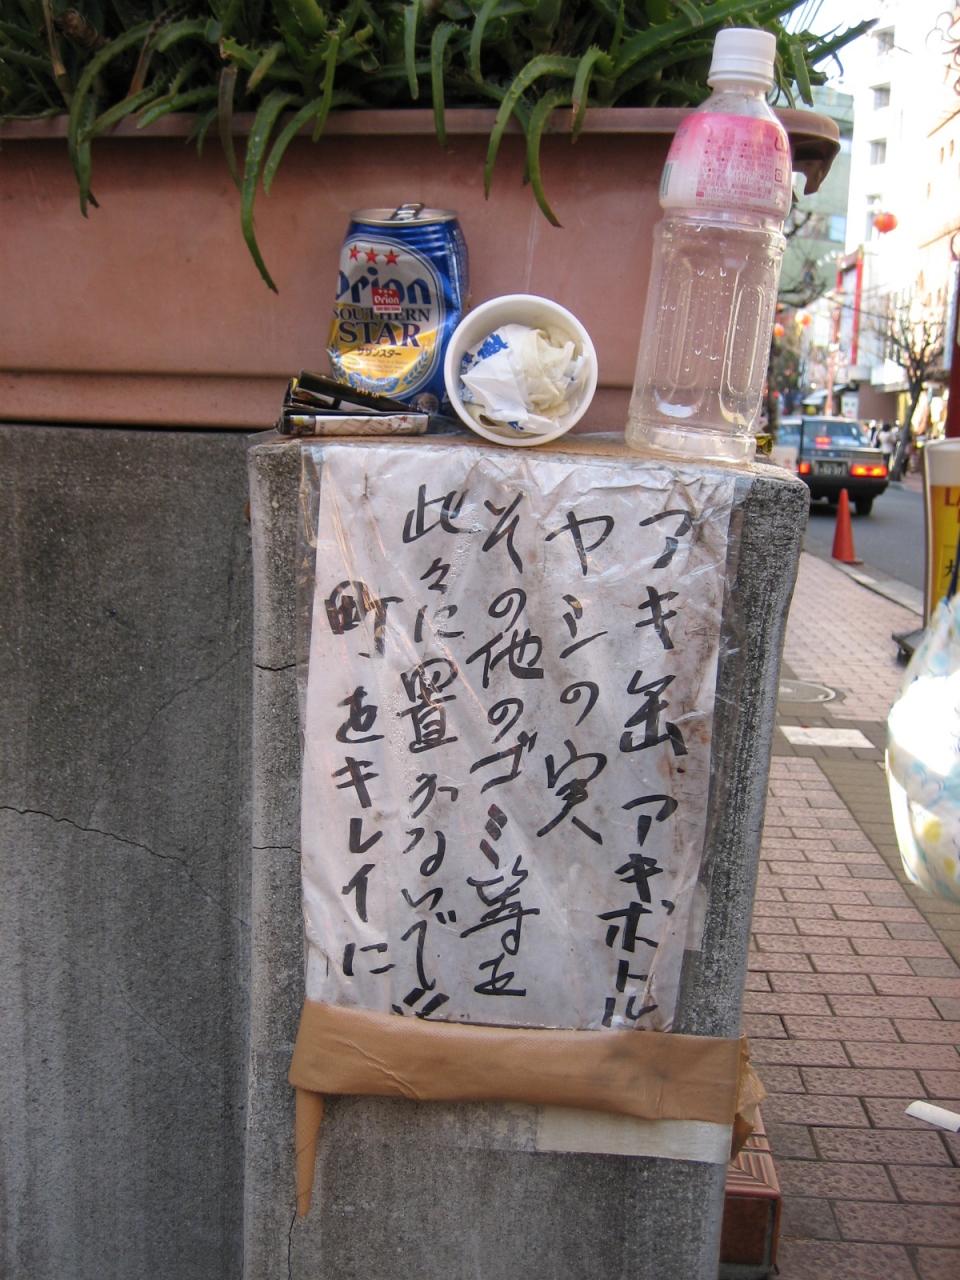 アキ缶 アキボトル
ヤシの実
その他のゴミ等を
此々に置かないで!!
町をキレイに
Orion
Orion
SOUTHERN
STAR
サザンスター